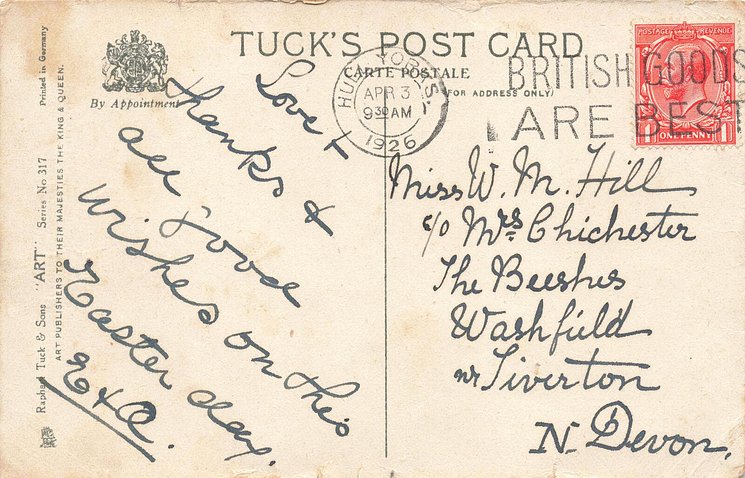 TUCK'S POST CARD
CARTE POSTALE
(FOR ADDRESS ONLY)
By Appointment
Raphael Tuck & Sons "ART" Series No. 317 Printed in Germany
ART PUBLISHERS TO THEIR MAJESTIES THE KING & QUEEN.
HULL YORKS.
APR 3
930 AM
1926
BRITISH GOODS
ARE BEST
POSTAGE REVENUE
ONE PENNY
Love &
thanks &
all good
wishes on this
Easter day.
E & A.
Miss W. M. Hill
c/o Mrs Chichester
The Beeches
Washfield
nr Tiverton
N. Devon.